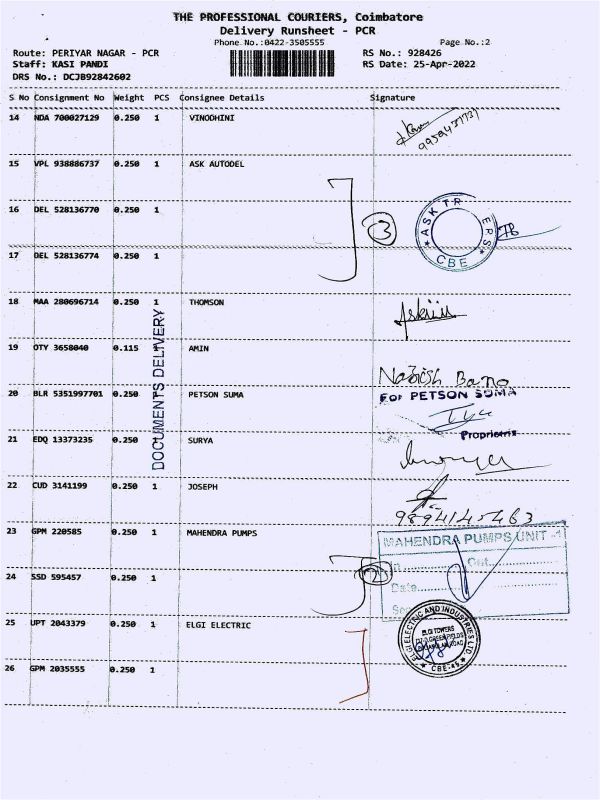 THE PROFESSIONAL COURIERS, Coimbatore
Delivery Runsheet - PCR
Phone No.:0422-3505555
Page No.:2
Route: PERIYAR NAGAR - PCR
RS No.: 928426
Staff: KASI PANDI
RS Date: 25-Apr-2022
DRS No.: DCJB92842602
S No Consignment No Weight PCS Consignee Details Signature
14 NDA 700027129 0.250 1 VINODHINI
15 VPL 938886737 0.250 1 ASK AUTODEL
16 DEL 528136770 0.250 1
3
ASK TR ERS
CBE
17 DEL 528136774 0.250 1
18 MAA 280696714 0.250 1 THOMSON
DOCUMENTS DELIVERY
19 OTY 3658040 0.115 AMIN
Bano
20 BLR 5351997701 0.250 PETSON SUMA
For PETSON SUMA
Proprietrix
21 EDQ 13373235 0.250 SURYA
22 CUD 3141199 0.250 1 JOSEPH
9894145463
23 GPM 220585 0.250 1 MAHENDRA PUMPS
MAHENDRA PUMPS UNIT -1
Out
Date
24 SSD 595457 0.250 1
25 UPT 2043379 0.250 1 ELGI ELECTRIC
ELGI ELECTRIC AND INDUSTRIES LTD
ELGI TOWERS
CBE-45
26 GPM 2035555 0.250 1